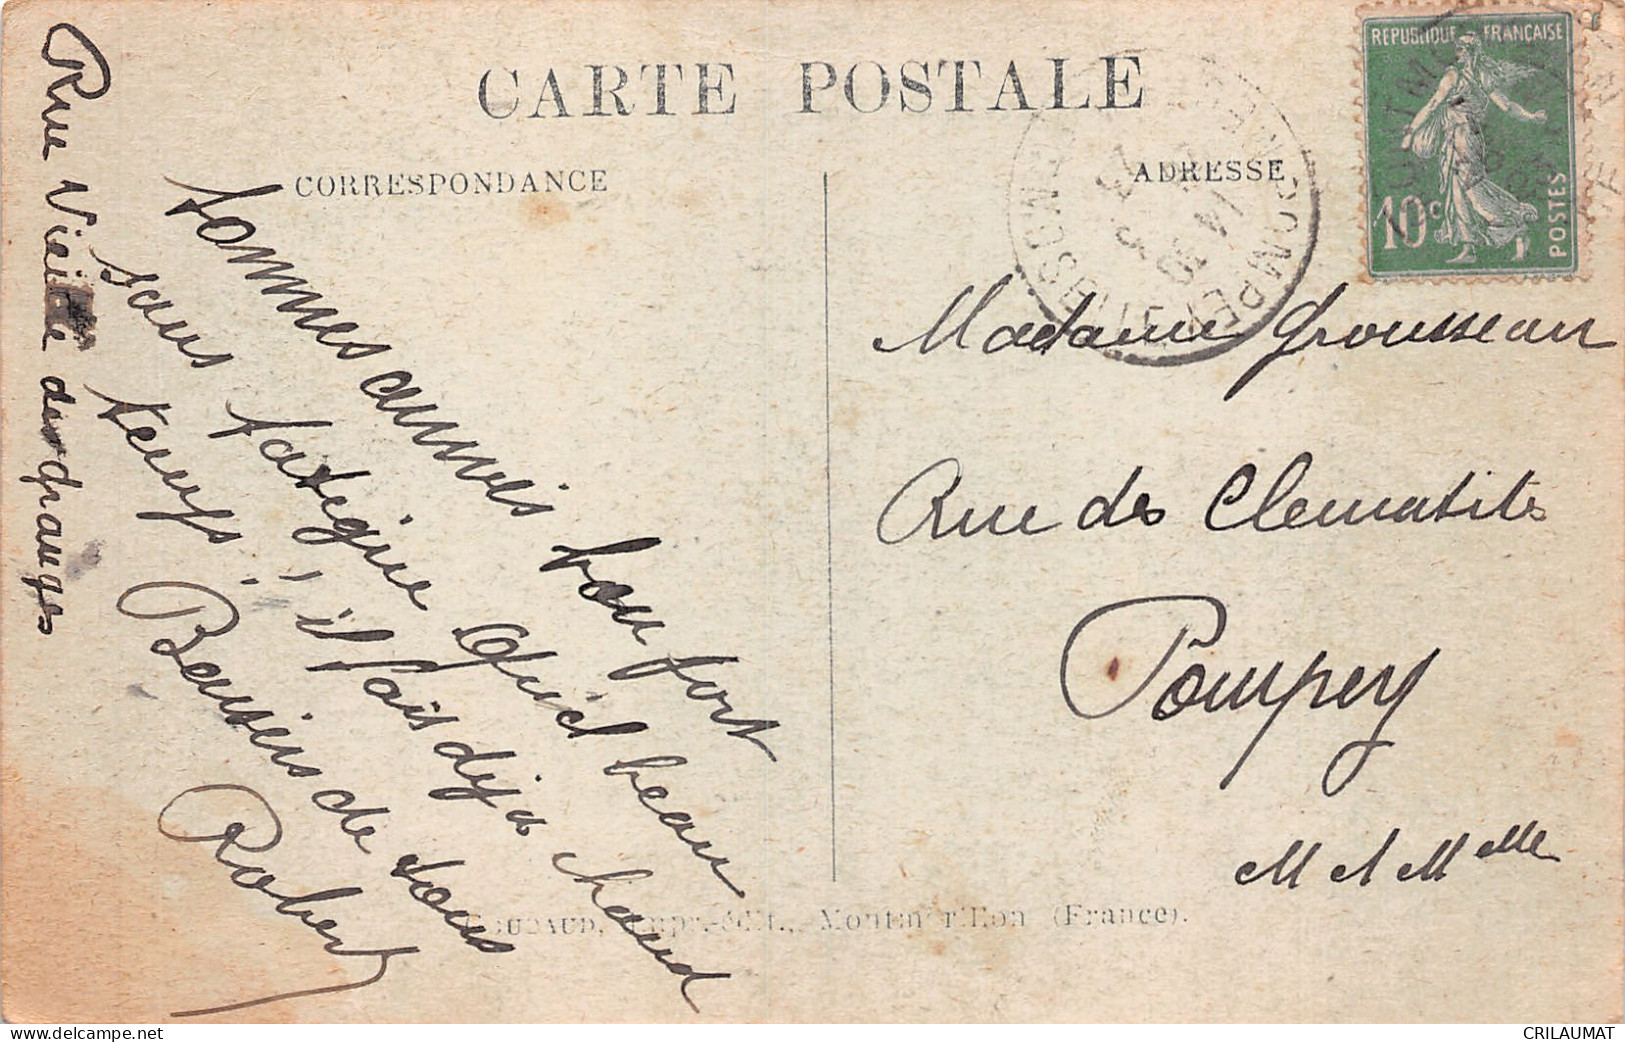 CARTE POSTALE
CORRESPONDANCE
ADRESSE
REPUBLIQUE FRANÇAISE
10c
POSTES
14 30
Rue Vieille des Granges
Sommes arrivés bon port
sans fatigue Quel beau
temps, il fais déja chaud
Baisers de tous
Robert
Madame Grousseau
Rue des Clematites
Pompey
M et Melle
Impr.-édit., Montmorillon (France).
CRILAUMAT